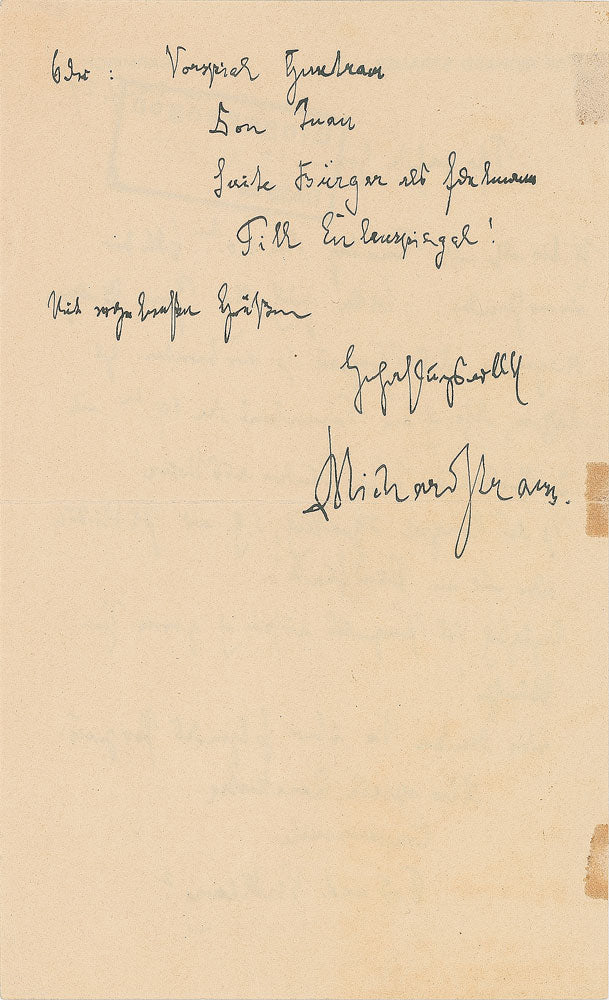 Oder : Vorspiel Guntram
Don Juan
Suite Bürger als Edelmann
Till Eulenspiegel!
Mit Grüßen
Hochachtungsvoll
Richard Strauss.